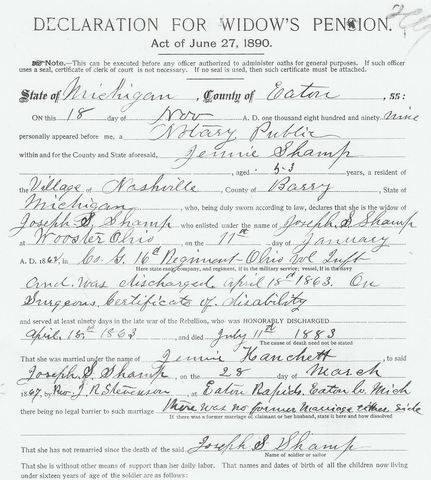 DECLARATION FOR WIDOW'S PENSION.
Act of June 27, 1890.
Note.—This can be executed before any officer authorized to administer oaths for general purposes. If such officer
uses a seal, certificate of clerk of court is not necessary. If no seal is used, then such certificate must be attached.
State of Michigan, County of Eaton, ss:
ON this 18 day of Nov A. D. one thousand eight hundred and ninety nine
personally appeared before me, a Notary Public
within and for the County and State aforesaid, Jennie Shamp
, aged 53 years, a resident of
the Village of Nashville, County of Barry, State of
Michigan, who, being duly sworn according to law, declares that she is the widow of
Joseph S. Shamp who enlisted under the name of Joseph S. Shamp
at Wooster Ohio, on the 11th day of January
A. D. 186, in Co. G. 16th Regiment Ohio Vol Inft
Here state rank, company, and regiment, if in the military service; vessel, if in the navy
and was discharged april 18th 1863. On
Surgeons Certificate of disability
and served at least ninety days in the late war of the Rebellion, who was HONORABLY DISCHARGED
april 18th 1863, and died July 11th 1883
The cause of death need not be stated
That she was married under the name of Jennie Hanchett, to said
Joseph S. Shamp, on the 28 day of March
1867, by Rev. J. R. Stevenson, at Eaton Rapids, Eaton Co. Mich
there being no legal barrier to such marriage There was no former marriage either side
If there was a former marriage of claimant or her husband, state it here and how dissolved
That she has not remarried since the death of the said Joseph S Shamp
Name of soldier or sailor
That she is without means of support than her daily labor. That names and dates of birth of all the children now living
under sixteen years of age of the soldier are as follows: